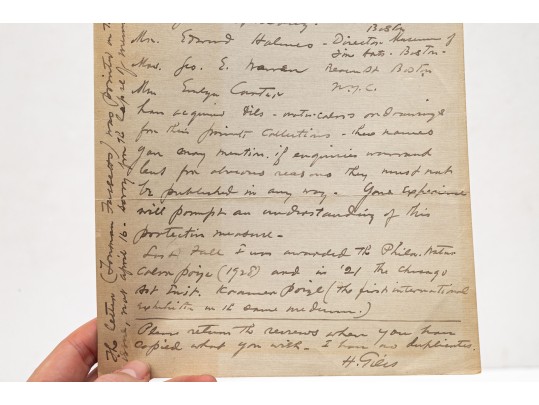 Boston
Mr. Edward Holmes - Director Museum of
Fine Arts. Boston-
Mrs. Geo. E. Warren Beacon St Boston
Mrs Evelyn Carter N.Y.C.
have acquired Oils - water-colors or drawings
for their private collections - these names
you may mention if enquiries warrant
but for obvious reasons they must not
be published in any way - Your experience
will prompt an understanding of this
protective measure -
Last Fall I was awarded the Phila. Water
Color prize (1928) and in '21 the Chicago
Art Inst. prize (the first international
exhibition in the same medium.)
Please return the reviews when you have
copied what you wish - I have no duplicates.
H. Giles
The letter was on
not April 16 - Sorry for the lapse of